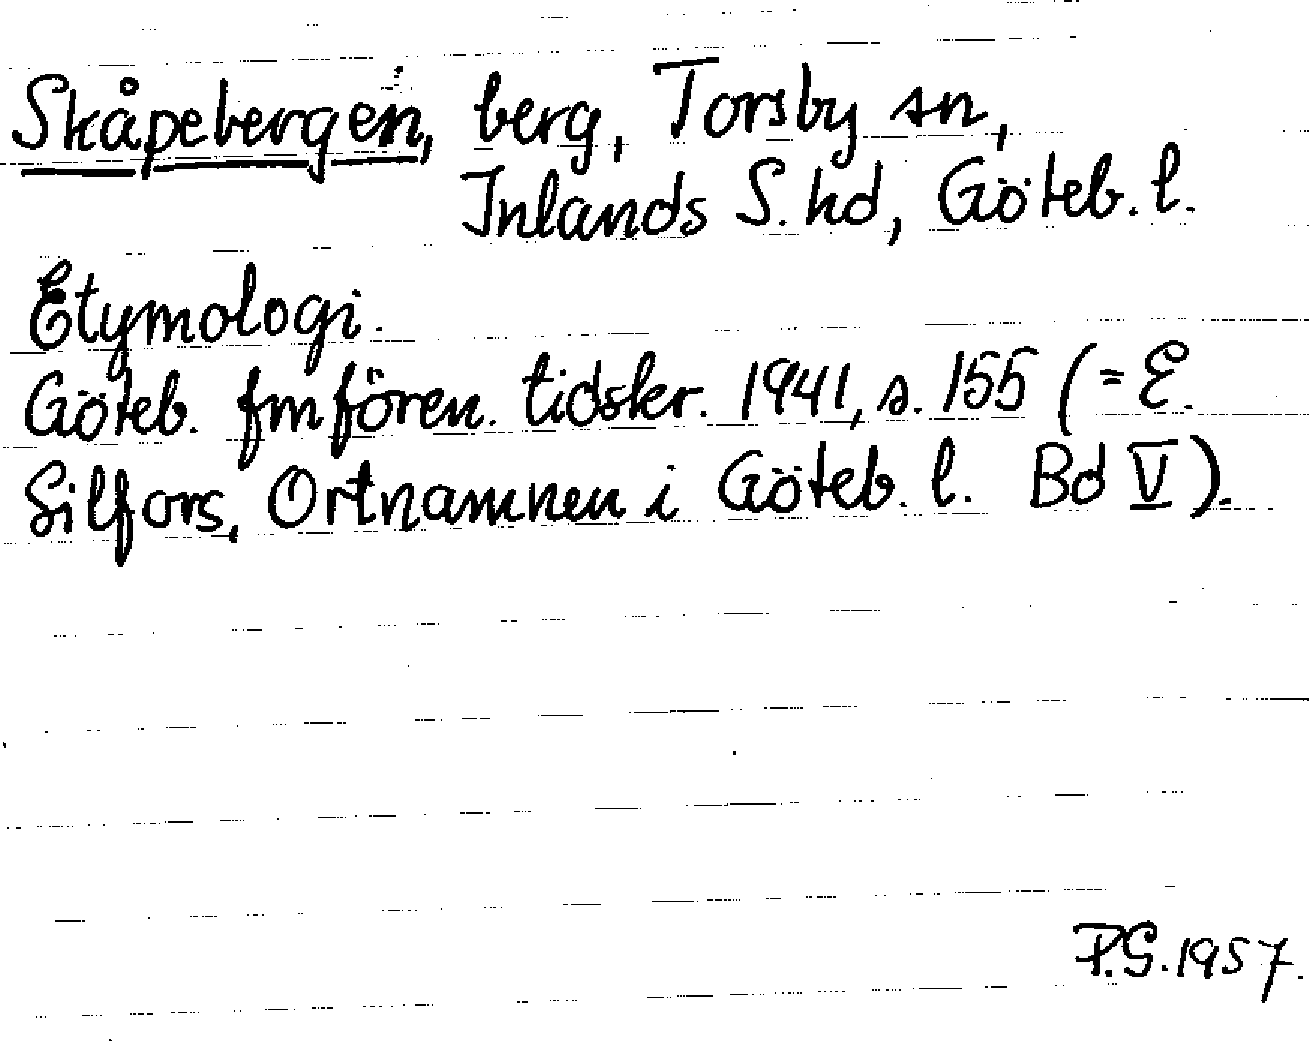 Skåpebergen, berg, Torsby sn,
Inlands S. hd, Göteb. l.
Etymologi.
Göteb. fmfören. tidskr. 1941, s. 155 (= E.
Silfors, Ortnamnen i Göteb. l. Bd V).
P.G. 1957.